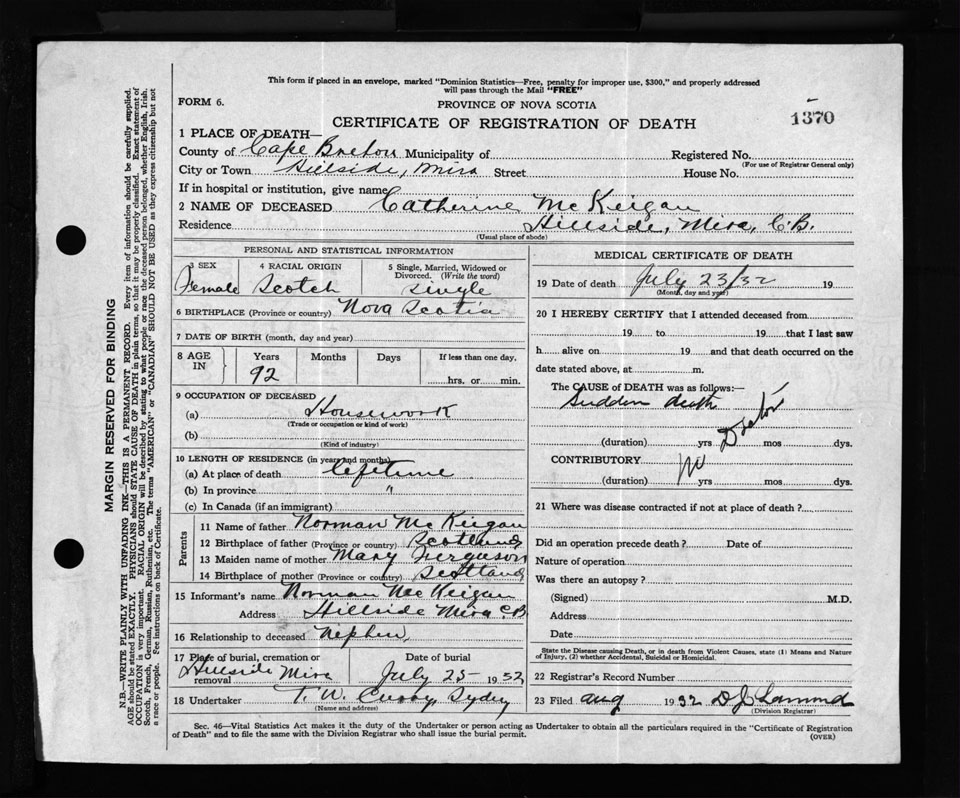 This form if placed in an envelope, marked "Dominion Statistics—Free, penalty for improper use, $300," and properly addressed
will pass through the Mail "FREE"
FORM 6.
PROVINCE OF NOVA SCOTIA
CERTIFICATE OF REGISTRATION OF DEATH
1370
1 PLACE OF DEATH—
County of Cape Breton Municipality of
Registered No.
(For use of Registrar General only)
City or Town Hillside, Mira Street House No.
If in hospital or institution, give name
2 NAME OF DECEASED Catherine McKeigan
Residence Hillside, Mira, C.B.
(Usual place of abode)
PERSONAL AND STATISTICAL INFORMATION
3 SEX
Female
4 RACIAL ORIGIN
Scotch
5 Single, Married, Widowed or
Divorced. (Write the word)
Single
6 BIRTHPLACE (Province or country) Nova Scotia
7 DATE OF BIRTH (month, day and year)
8 AGE
IN
Years
92
Months
Days
If less than one day,
hrs. or min.
9 OCCUPATION OF DECEASED
(a) Housework
(Trade or occupation or kind of work)
(b)
(Kind of industry)
10 LENGTH OF RESIDENCE (in years and months)
(a) At place of death Lifetime
(b) In province "
(c) In Canada (if an immigrant)
Parents
11 Name of father Norman McKeigan
12 Birthplace of father (Province or country) Scotland
13 Maiden name of mother Mary Ferguson
14 Birthplace of mother (Province or country) Scotland
15 Informant's name Norman McKeigan
Address Hillside Mira C.B
16 Relationship to deceased Nephew
17 Place of burial, cremation or
removal Hillside Mira
Date of burial
July 25 1932
18 Undertaker T. W. Curry, Sydney
(Name and address)
MEDICAL CERTIFICATE OF DEATH
19 Date of death July 23/32 19
(Month, day and year)
20 I HEREBY CERTIFY that I attended deceased from
19 to 19 that I last saw
h alive on 19 and that death occurred on the
date stated above, at m.
The CAUSE of DEATH was as follows:—
Sudden death
No Doctor
(duration) yrs mos dys.
CONTRIBUTORY
(duration) yrs mos dys.
21 Where was disease contracted if not at place of death?
Did an operation precede death? Date of
Nature of operation
Was there an autopsy?
(Signed) M.D.
Address
Date
State the Disease causing Death, or in death from Violent Causes, state (1) Means and Nature
of Injury, (2) whether Accidental, Suicidal or Homicidal.
22 Registrar's Record Number
23 Filed Aug 1932 D J Lamond
(Division Registrar)
Sec. 46—Vital Statistics Act makes it the duty of the Undertaker or person acting as Undertaker to obtain all the particulars required in the "Certificate of Registration
of Death" and to file the same with the Division Registrar who shall issue the burial permit.
(OVER)
MARGIN RESERVED FOR BINDING
N.B.—WRITE PLAINLY WITH UNFADING INK—THIS IS A PERMANENT RECORD. Every item of information should be carefully supplied.
AGE should be stated EXACTLY. PHYSICIANS should STATE CAUSE OF DEATH in plain terms, so that it may be properly classified. Exact statement of
OCCUPATION is very important. RACIAL ORIGIN will be described by stating to what people or race the deceased person belonged, whether English, Irish,
Scotch, French, German, Russian, Ruthenian, etc. The terms "AMERICAN" or "CANADIAN" SHOULD NOT BE USED as they express citizenship but not
a race or people. See instructions on back of Certificate.